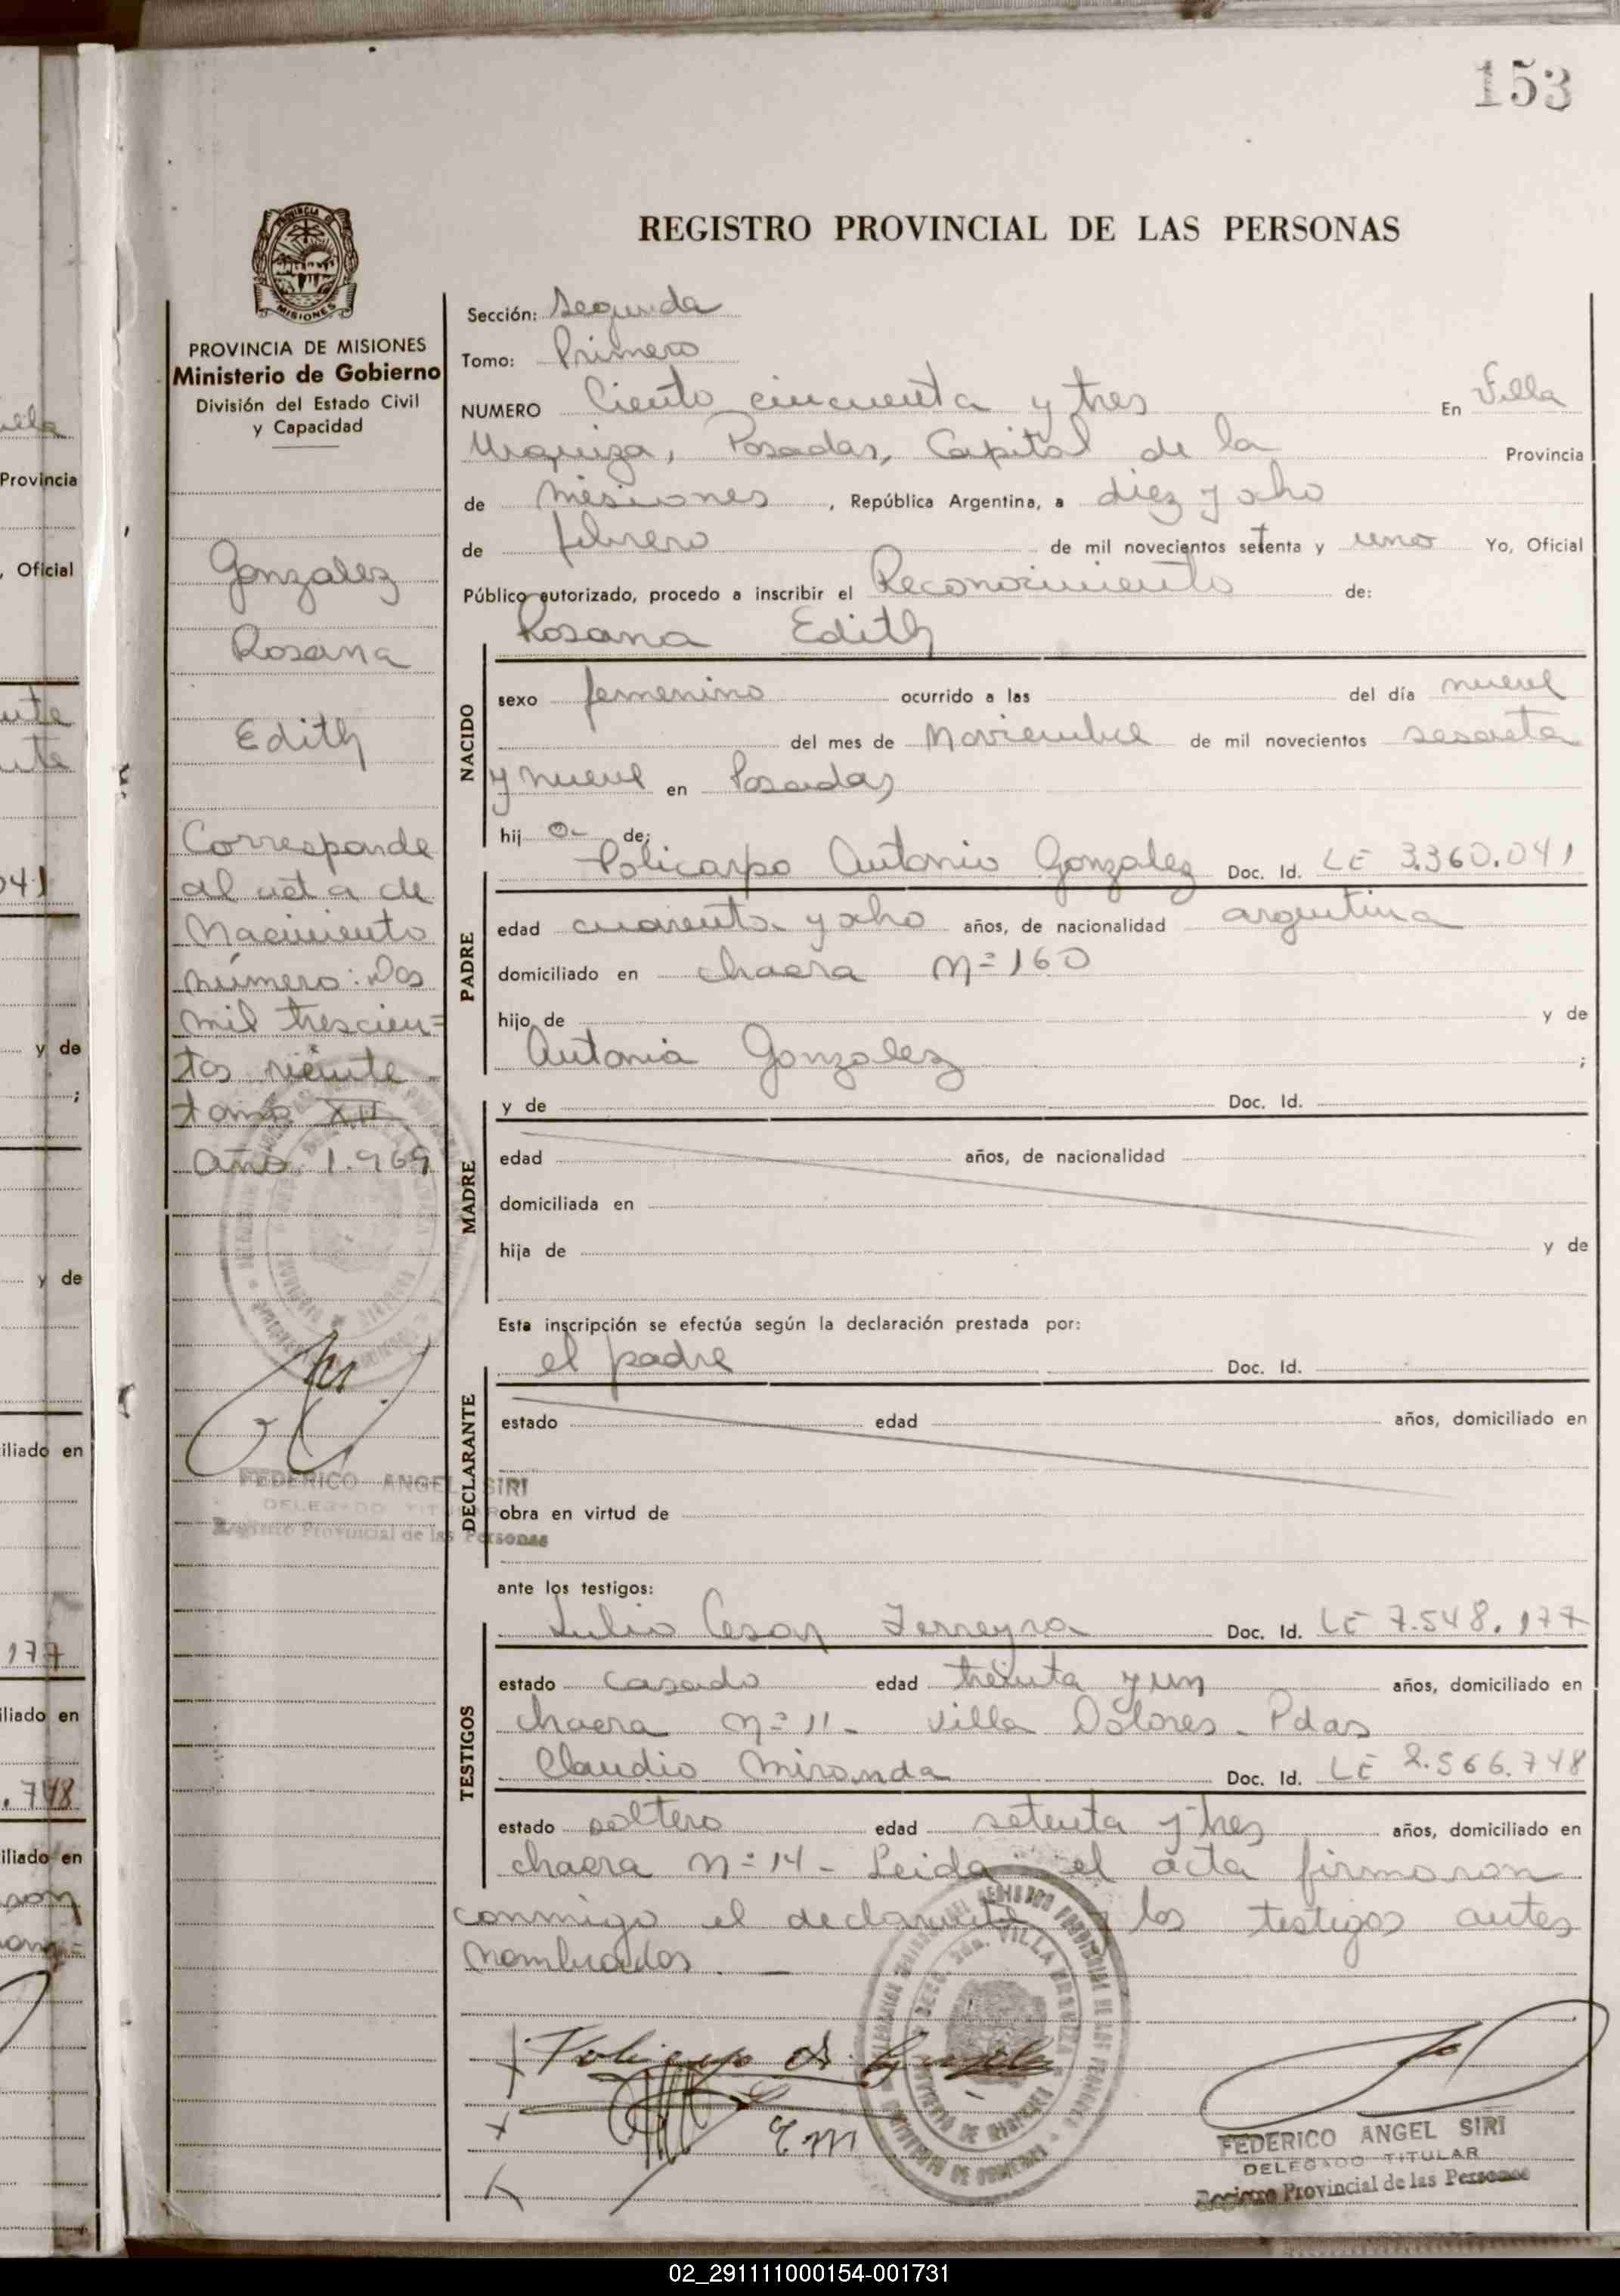 153
REGISTRO PROVINCIAL DE LAS PERSONAS
PROVINCIA DE MISIONES
Ministerio de Gobierno
División del Estado Civil
y Capacidad
Gonzalez
Rosana
Edith
Corresponde
al acta de
Nacimiento
número: Dos
mil trescien=
tos veinte
tomo XII
año 1.969
FEDERICO ANGEL SIRI
DELEGADO TITULAR
Registro Provincial de las Personas
Sección: Segunda
Tomo: Primero
NUMERO Ciento cincuenta y tres En Villa
Urquiza, Posadas, Capital de la Provincia
de Misiones, República Argentina, a diez y ocho
de febrero de mil novecientos setenta y uno Yo, Oficial
Público autorizado, procedo a inscribir el Reconocimiento de:
Rosana Edith
NACIDO
sexo femenino ocurrido a las del día nueve
del mes de Noviembre de mil novecientos sesenta
y nueve en Posadas
hij a de;
Policarpo Antonio Gonzalez Doc. Id. LE 3.360.041
PADRE
edad cuarenta y ocho años, de nacionalidad argentina
domiciliado en chacra nº 160
hijo de y de
Antonia Gonzalez ;
y de Doc. Id.
MADRE
edad años, de nacionalidad
domiciliada en
hija de y de
Esta inscripción se efectúa según la declaración prestada por:
el padre Doc. Id.
DECLARANTE
estado edad años, domiciliado en
obra en virtud de
ante los testigos:
Julio Cesar Ferreyra Doc. Id. LE 7.548.177
TESTIGOS
estado casado edad treinta y un años, domiciliado en
chacra nº 11 - Villa Dolores - Pdas
Claudio Miranda Doc. Id. LE 2.566.748
estado soltero edad setenta y tres años, domiciliado en
chacra nº 14 - Leida el acta firmaron
conmigo el declarante y los testigos antes
nombrados. —
Policarpo A. Gonzalez
C M
FEDERICO ANGEL SIRI
DELEGADO TITULAR
Registro Provincial de las Personas
02_291111000154-001731